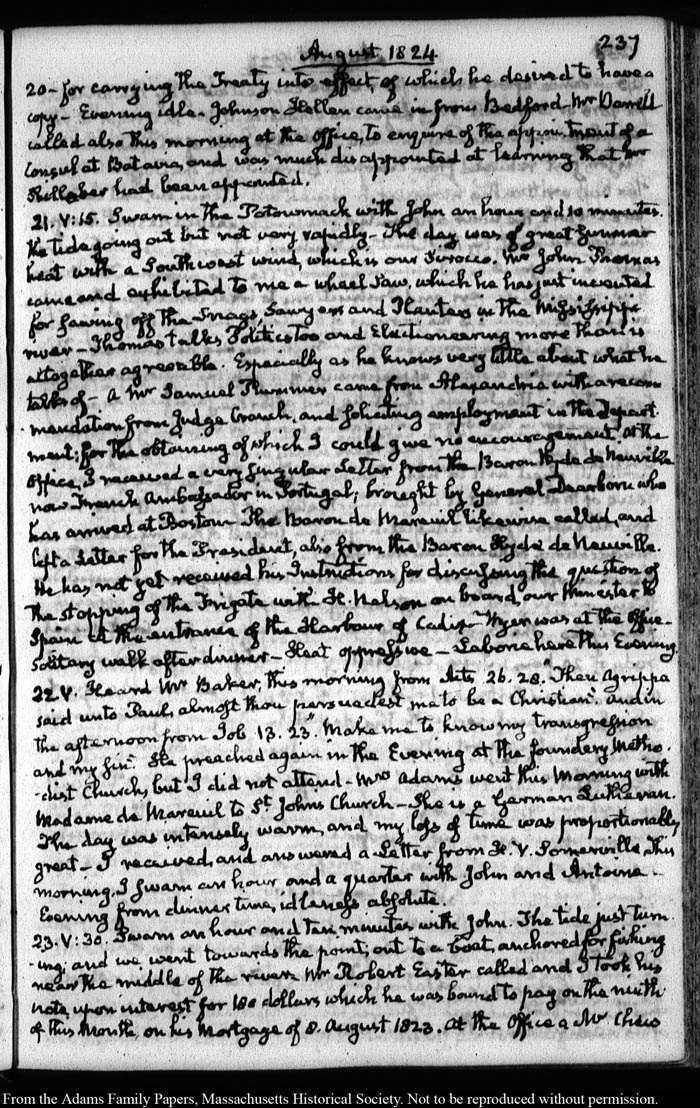 August 1824
237
20 – for carrying the Treaty into effect, of which he desired to have a
copy – Evening idle. Johnson Hellen came in from Bedford – Mr Darrell
called also this morning at the Office, to enquire of the appointment of a
Consul at Batavia, and was much disappointed at learning that Mr
Shillaber had been appointed.
21. V:15. Swam in the Potowmack with John an hour and 10 minutes.
The tide going out but not very rapidly – The day was of great Summer
heat with a Southwest wind, which is our Sirocco. Mr John Thomas
came and exhibited to me a wheel Saw, which he has just invented
for sawing off the Snags, Sawyers and Planters in the Mississippi
river – Thomas talks Politics too and Electioneering more than is
altogether agreeable. Especially as he knows very little about what he
talks of – A Mr Samuel Plummer came from Alexandria with a recom
mendation from Judge Cranch, and soliciting employment in the Depart-
ment; for the obtaining of which I could give no encouragement. At the
Office, I received a very singular Letter from the Baron Hyde de Neuville
now French Ambassador in Portugal; brought by General Dearborn who
has arrived at Boston. The Baron de Mareuil likewise called, and
left a Letter for the President, also from the Baron Hyde de Neuville.
He has not yet received his Instructions for discussing the question of
the stopping of the Frigate with H. Nelson on board, our Minister to
Spain at the entrance of the Harbour of Cadiz – Wyer was at the Office –
Solitary walk after dinner – Heat oppressive – Laborie here this Evening.
22 V. Heard Mr Baker, this morning from Acts 26. 28. "Then Agrippa
said unto Paul, almost thou persuadest me to be a Christian". And in
the afternoon from Job 13. 23 "Make me to know my transgression
and my sin". He preached again in the Evening at the foundery Metho-
-dist Church, but I did not attend – Mrs Adams went this Morning with
Madame de Mareuil to St Johns Church – She is a German Lutheran.
The day was intensely warm, and my loss of time was proportionally
great – I received, and answered a Letter from H. V. Somerville. This
morning, I swam an hour and a quarter with John and Antoine –
Evening from dinner time, idleness absolute.
23. V:30. Swam an hour and ten minutes with John. The tide just turn-
-ing; and we went towards the point, out to a boat, anchored for fishing
near the middle of the river. Mr Robert Easter called and I took his
note, upon interest for 180 dollars which he was bound to pay on the ninth
of this Month, on his Mortgage of 8. August 1823. At the Office a Mr Chew
From the Adams Family Papers, Massachusetts Historical Society. Not to be reproduced without permission.